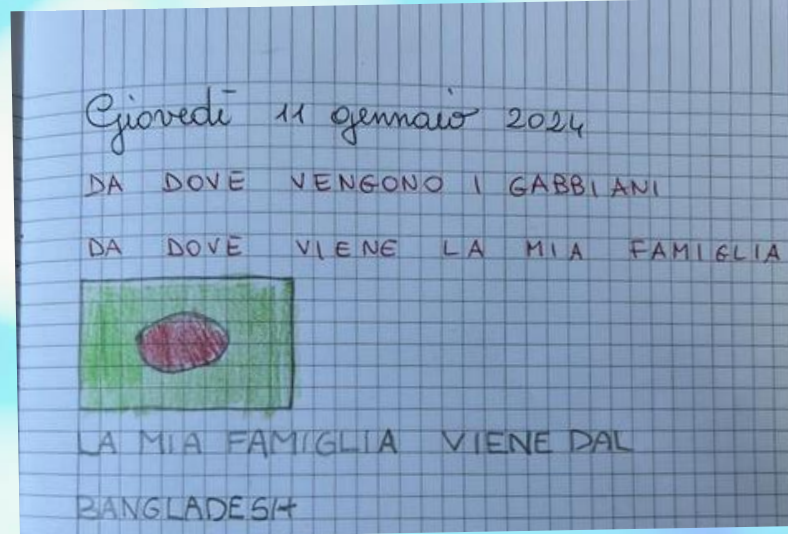 Giovedì 11 gennaio 2024
DA DOVE VENGONO I GABBIANI
DA DOVE VIENE LA MIA FAMIGLIA
LA MIA FAMIGLIA VIENE DAL
BANGLADESH